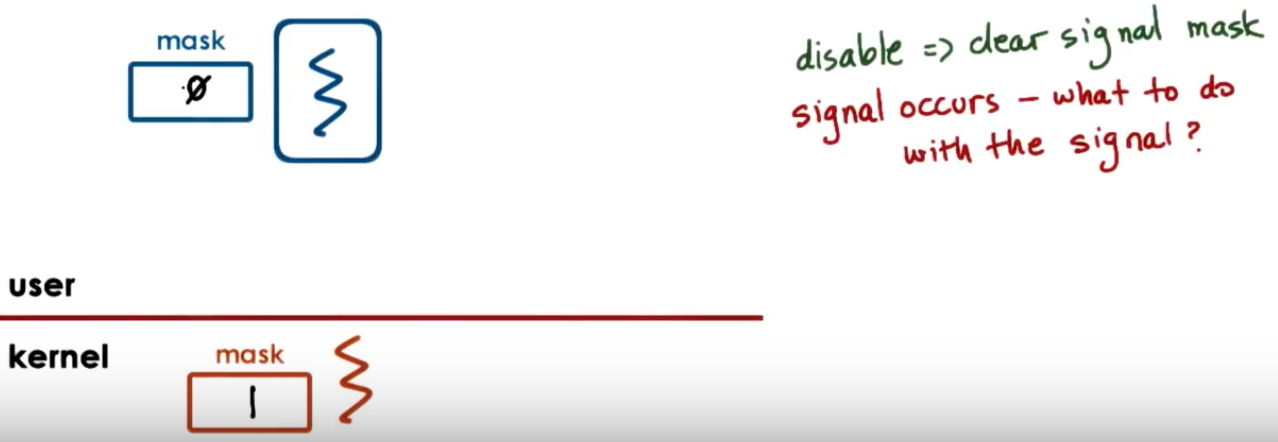 mask
0
disable => clear signal mask
signal occurs - what to do
with the signal?
user
kernel
mask
1